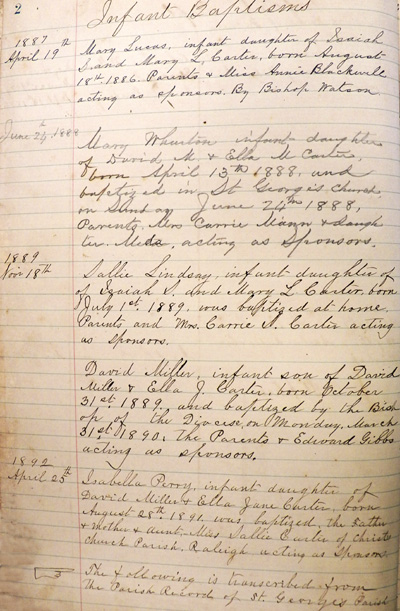 2
Infant Baptisms
1887
April 19th
Mary Lucas, infant daughter of Isaiah
S. and Mary L. Carter, born August
18th 1886. Parents & Miss Annie Blackwell
acting as sponsors. By Bishop Watson.
June 24th 1888
Mary Wharton infant daughter
of David M. & Ella M Carter,
born April 13th 1888, and
baptized in St George's Church
on Sunday June 24th 1888,
Parents, Mrs Carrie Mann & daugh
ter acting as Sponsors.
1889
Nov 18th
Sallie Lindsay, infant daughter of
of Isaiah S. and Mary L Carter, born
July 1st. 1889. was baptized at home.
Parents, and Mrs. Carrie S. Carter acting
as sponsors.
David Miller, infant son of David
Miller & Ella J. Carter, born October
31st. 1889, and baptized by the Bish
op of the Diocese, on Monday, March
31st 1890, the Parents & Edward Gibbs
acting as sponsors.
1892
April 25th
Isabella Perry, infant daughter of
David Miller & Ella Jane Carter, born
August 28th. 1891. was baptized, the Father
& Mother & Aunt, Miss Sallie Carter of Christ
Church Parish, Raleigh acting as Sponsors
The following is transcribed from
the Parish Record of St. George's Parish